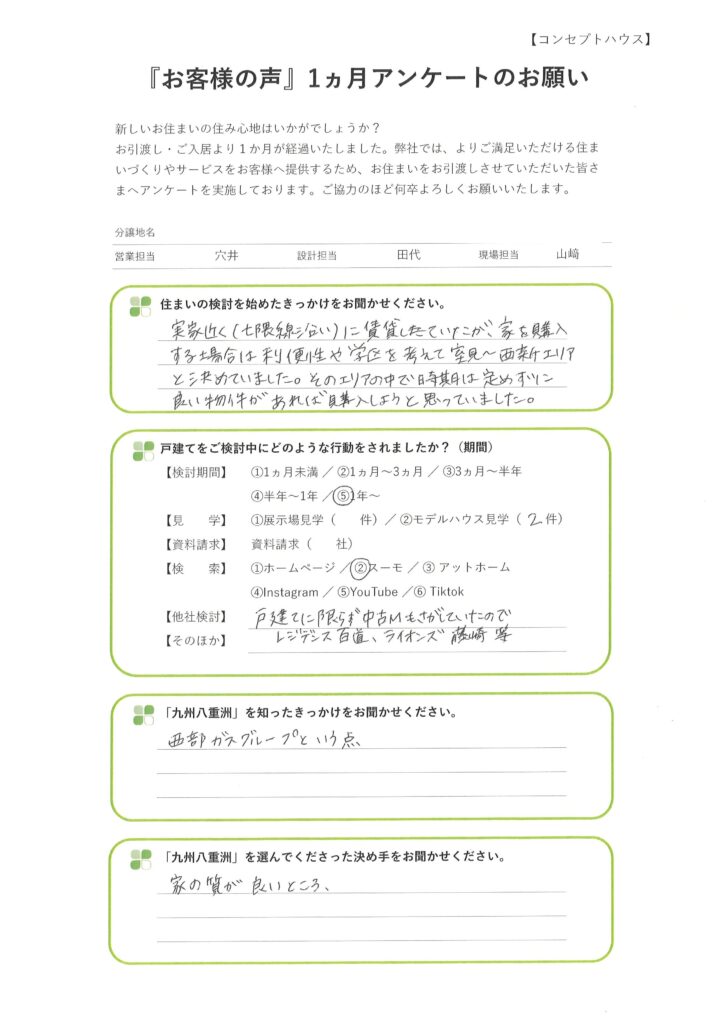 【コンセプトハウス】
『お客様の声』1ヵ月アンケートのお願い
新しいお住まいの住み心地はいかがでしょうか?
お引渡し・ご入居より1か月が経過いたしました。弊社では、よりご満足いただける住ま
いづくりやサービスをお客様へ提供するため、お住まいをお引渡しさせていただいた皆さ
まへアンケートを実施しております。ご協力のほど何卒よろしくお願いいたします。
分譲地名
営業担当 穴井 設計担当 田代 現場担当 山﨑
住まいの検討を始めたきっかけをお聞かせください。
実家近く(七隈線沿い)に賃貸したていたが、家を購入
する場合は利便性や学区を考えて室見~西新エリア
と決めていました。そのエリアの中で時期は定めずに
良い物件があれば購入しようと思っていました。
戸建てをご検討中にどのような行動をされましたか?(期間)
【検討期間】 ①1ヵ月未満 / ②1ヵ月~3ヵ月 / ③3ヵ月~半年
④半年~1年 / ⑤1年~
【見 学】 ①展示場見学( 件) / ②モデルハウス見学( 2 件)
【資料請求】 資料請求( 社)
【検 索】 ①ホームページ / ②スーモ / ③ アットホーム
④Instagram / ⑤YouTube / ⑥ Tiktok
【他社検討】 戸建てに限らず中古Mもさがしていたので
【そのほか】 レジデンス百道、ライオンズ藤崎等
「九州八重洲」を知ったきっかけをお聞かせください。
西部ガスグループという点、
「九州八重洲」を選んでくださった決め手をお聞かせください。
家の質が良いところ、